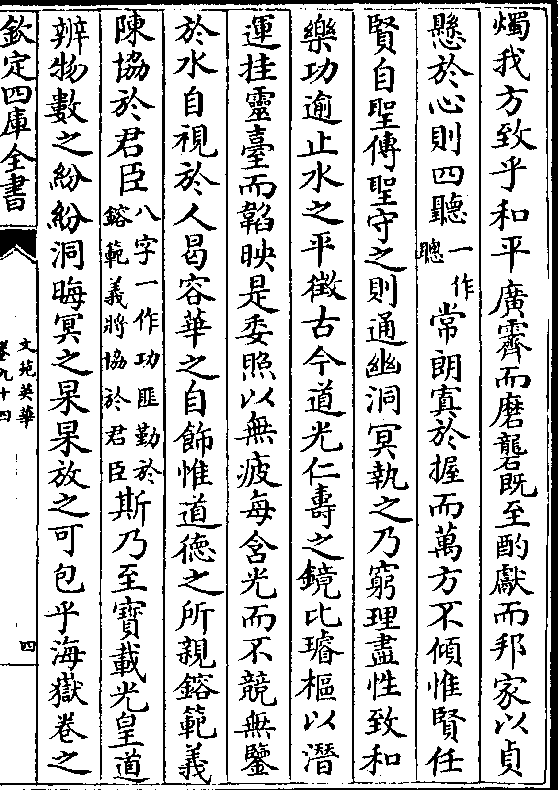 燭我方致乎和平廣霽而磨礲既至酌獻而邦家以貞
懸於心則四聽一作聰常朗寘於握而萬方不傾惟賢任
賢自聖傳聖守之則通幽洞冥執之乃窮理盡性致和
樂功逾止水之平徵古今道光仁壽之鏡比璿樞以潛
運挂靈臺而韜映是委照以無疲每含光而不競無鑒
於水自視於人曷容華之自飾惟道德之所親鎔範義
陳協於君臣八字一作功匪勤於鎔範義將協於君臣斯乃至寶載光皇道
辨物數之紛紛洞晦冥之杲杲放之可包乎海嶽卷之
欽定四庫全書
文苑英華
卷九十四
四